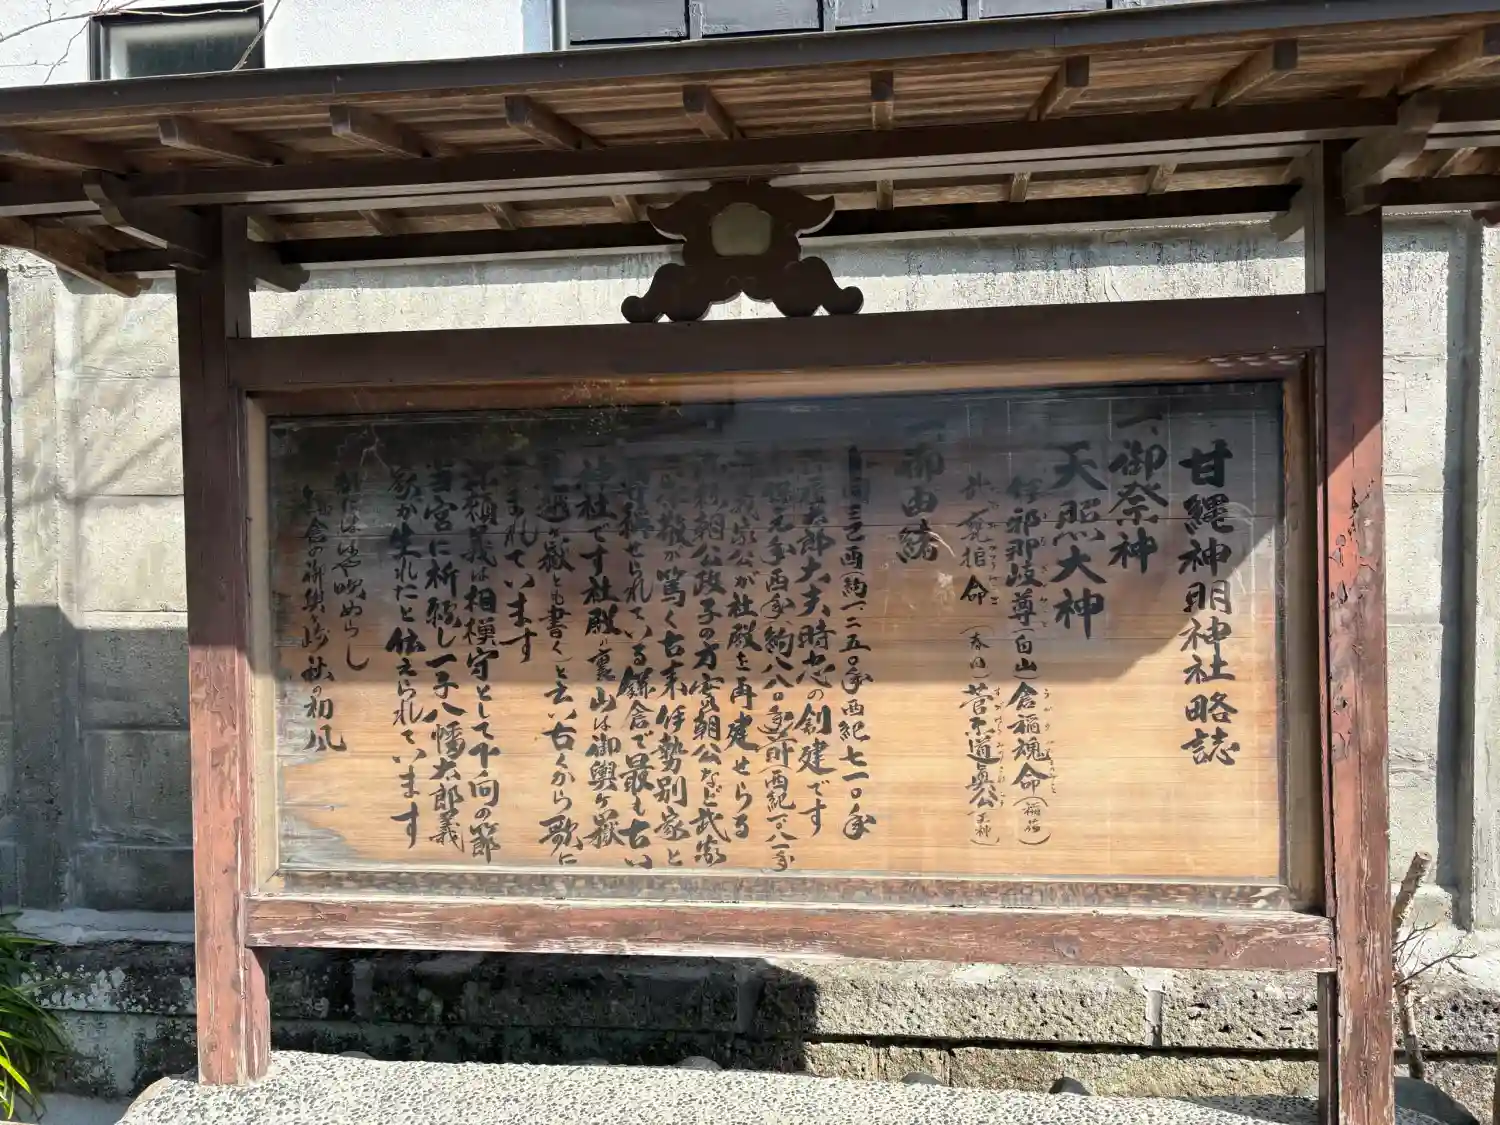 甘縄神明神社略誌
一、御祭神
天照大神
伊邪那岐尊(白山)倉稲魂命(稲荷)
武甕槌命(春日)菅原道真公(天神)
一、御由緒
(約一二五〇年西紀七一〇年)
太郎大夫時忠の創建です
元年酉年(約八八〇年西紀一〇八一年
義家公が社殿を再建せらる
頼朝公政子の方実朝公など武家
の崇敬が篤く古来伊勢別家と
尊称せられている鎌倉で最も古い
神社です社殿の裏山は御輿ヶ嶽
(見越ヶ嶽とも書く)と云い古くから歌に
よまれています
源頼義は相模守として下向の節
当宮に祈願し一子八幡太郎義
家が生れたと伝えられています
都にははや吹ぬらし
鎌倉の御輿ヶ崎秋の初風